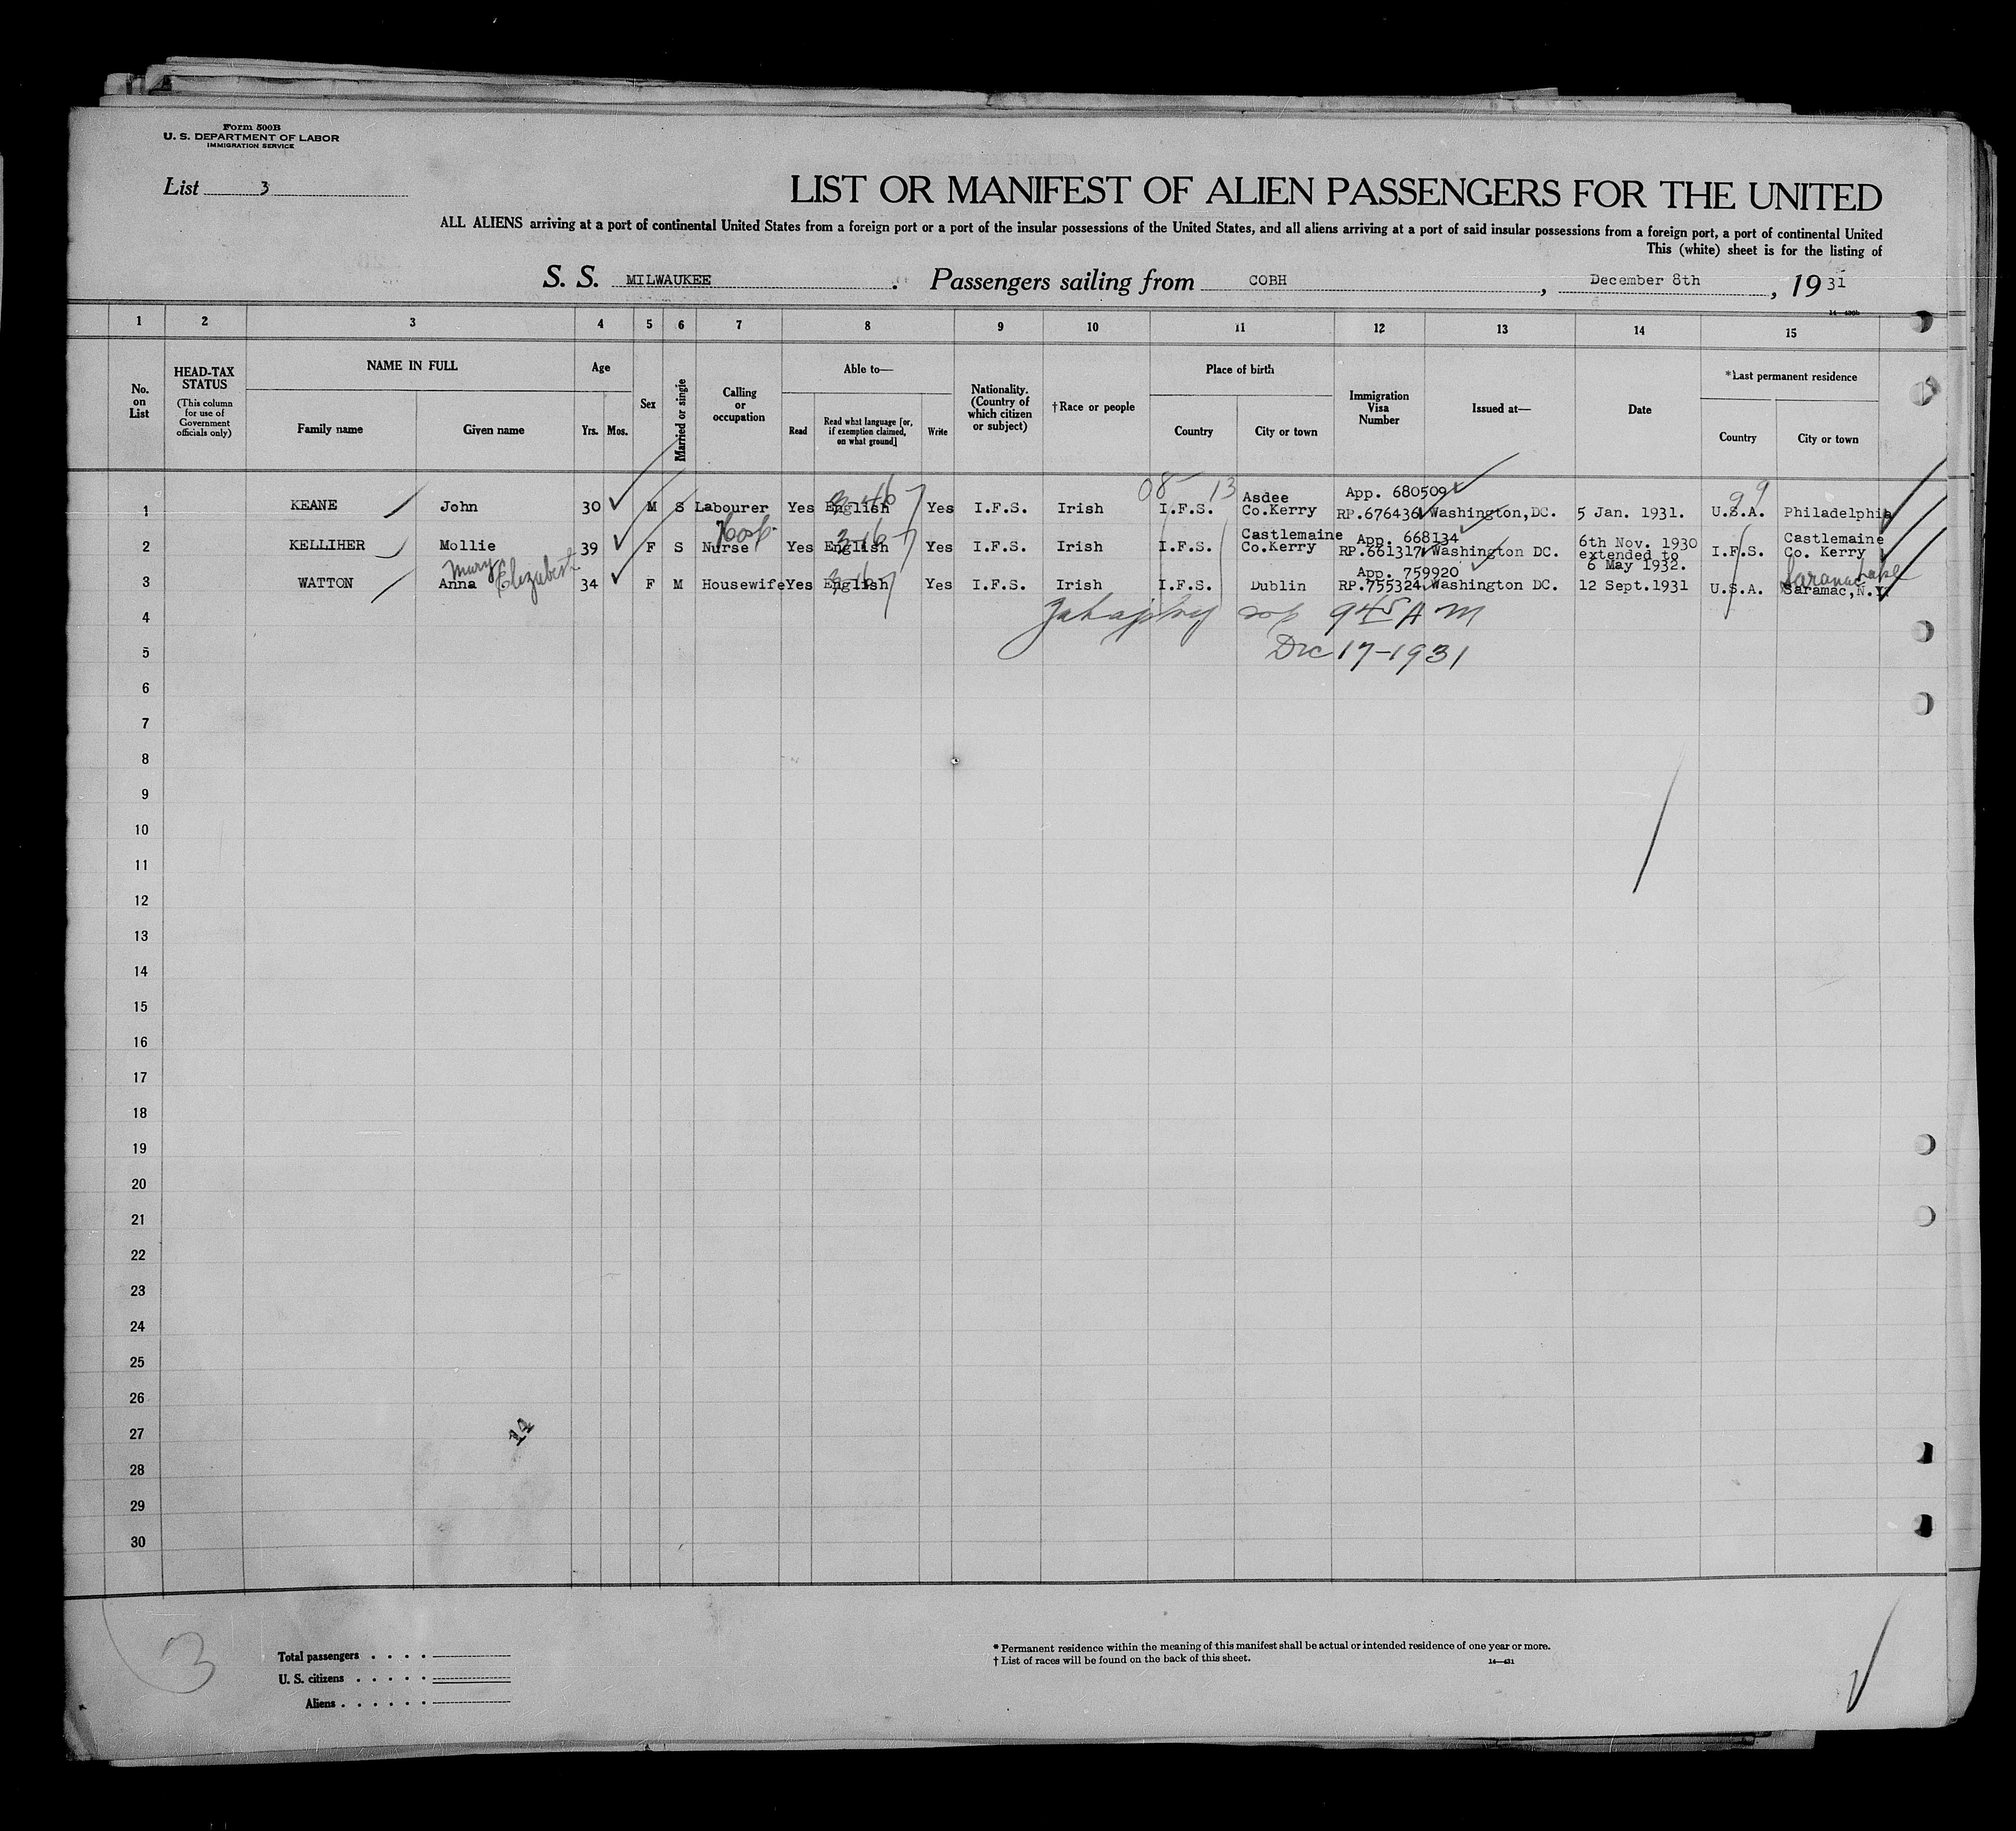 Form 500B
U. S. DEPARTMENT OF LABOR
IMMIGRATION SERVICE
List 3
LIST OR MANIFEST OF ALIEN PASSENGERS FOR THE UNITED
ALL ALIENS arriving at a port of continental United States from a foreign port or a port of the insular possessions of the United States, and all aliens arriving at a port of said insular possessions from a foreign port, a port of continental United
This (white) sheet is for the listing of
S. S. MILWAUKEE . Passengers sailing from COBH , December 8th , 19 31
1 2 3 4 5 6 7 8 9 10 11 12 13 14 15
No. on List
HEAD-TAX STATUS (This column for use of Government officials only)
NAME IN FULL
Family name Given name
Age
Yrs. Mos.
Sex
Married or single
Calling or occupation
Able to—
Read Read what language [or, if exemption claimed, on what ground] Write
Nationality. (Country of which citizen or subject)
†Race or people
Place of birth
Country City or town
Immigration Visa Number
Issued at—
Date
*Last permanent residence
Country City or town
08 13 99
1 KEANE John 30 M S Labourer Yes English Yes I.F.S. Irish I.F.S. Asdee Co.Kerry App. 680509 RP.676436 Washington,DC. 5 Jan. 1931. U.S.A. Philadelphia
Hosp.
2 KELLIHER Mollie 39 F S Nurse Yes English Yes I.F.S. Irish I.F.S. Castlemaine Co.Kerry App. 668134 RP.661317 Washington DC. 6th Nov. 1930 extended to 6 May 1932. I.F.S. Castlemaine Co. Kerry
Mary Elizabeth Saranac Lake
3 WATTON Anna 34 F M Housewife Yes English Yes I.F.S. Irish I.F.S. Dublin App. 759920 RP.755324 Washington DC. 12 Sept.1931 U.S.A. Saramac,N.Y.
4 9 45 A M
5 Dec 17-1931
6
7
8
9
10
11
12
13
14
15
16
17
18
19
20
21
22
23
24
25
26
27
28
29
30
14
3
Total passengers . . . .
U. S. citizens . . . . .
Aliens . . . . . .
* Permanent residence within the meaning of this manifest shall be actual or intended residence of one year or more.
† List of races will be found on the back of this sheet.
14—431